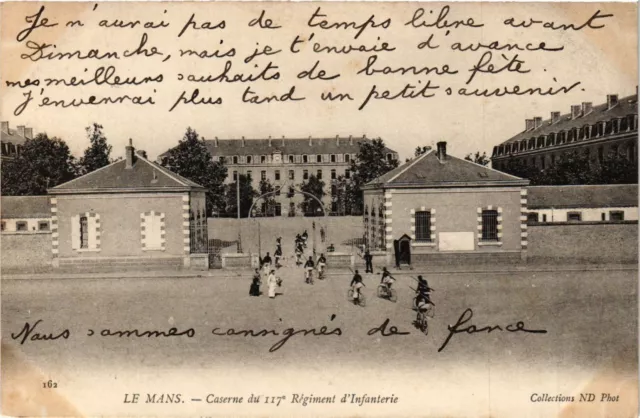 Je n'aurai pas de temps libre avant
Dimanche, mais je t'envaie d'avance
mes meilleurs souhaits de bonne fête.
J'enverrai plus tand un petit souvenir.
Nous sommes consignés de farce
162
LE MANS. — Caserne du 117e Régiment d'Infanterie
Collections ND Phot